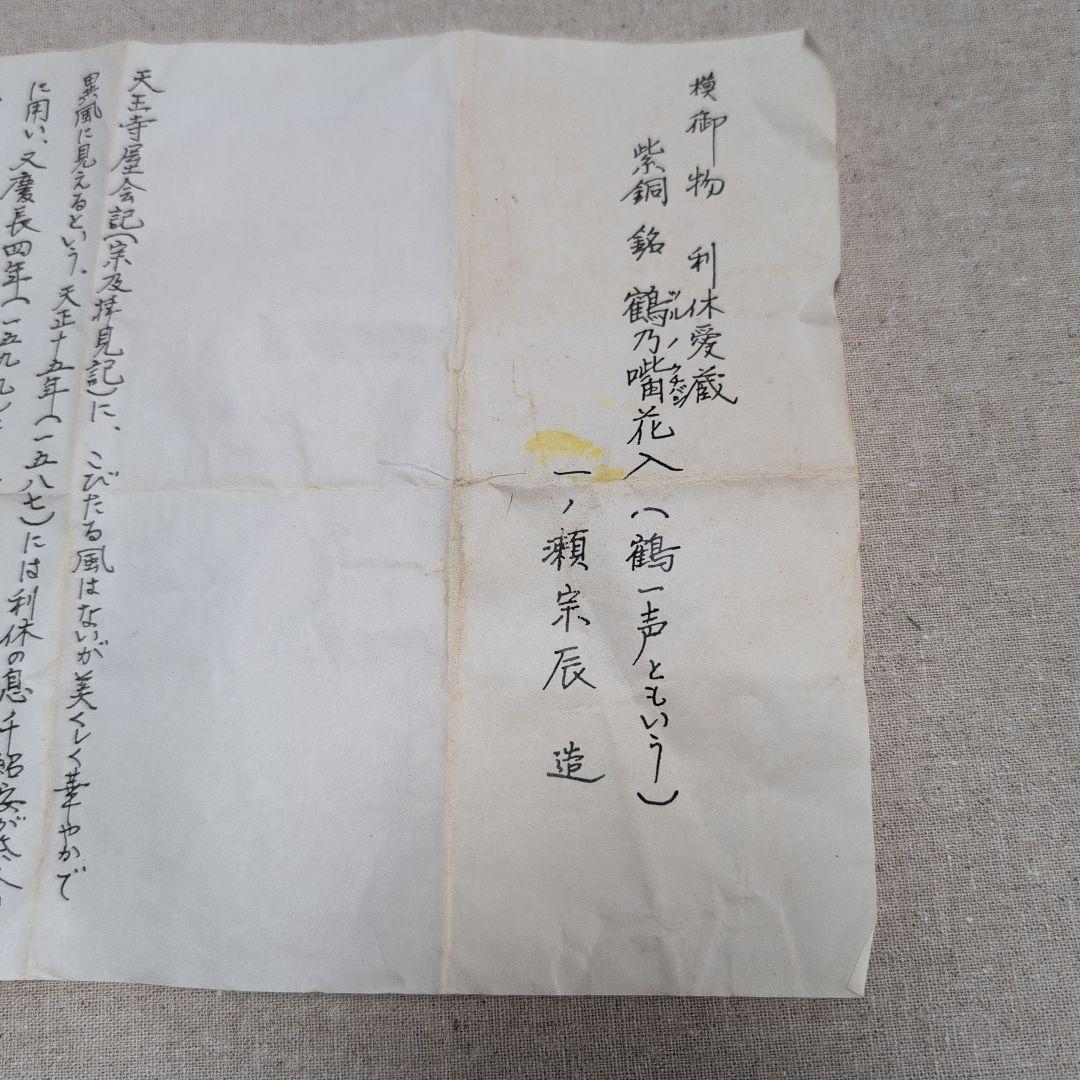 模御物 利休愛蔵
紫銅 銘 鶴乃嘴花入(鶴一声ともいう)
ツルノクチバシ
一ノ瀬宗辰 造
天王寺屋会記(宗及拝見記)に、こびたる風はないが美くしく華やかで
異風に見えるという。天正十五年(一五八七)には利休の息千紹安が茶会
に用い、又慶長四年(一五九九)